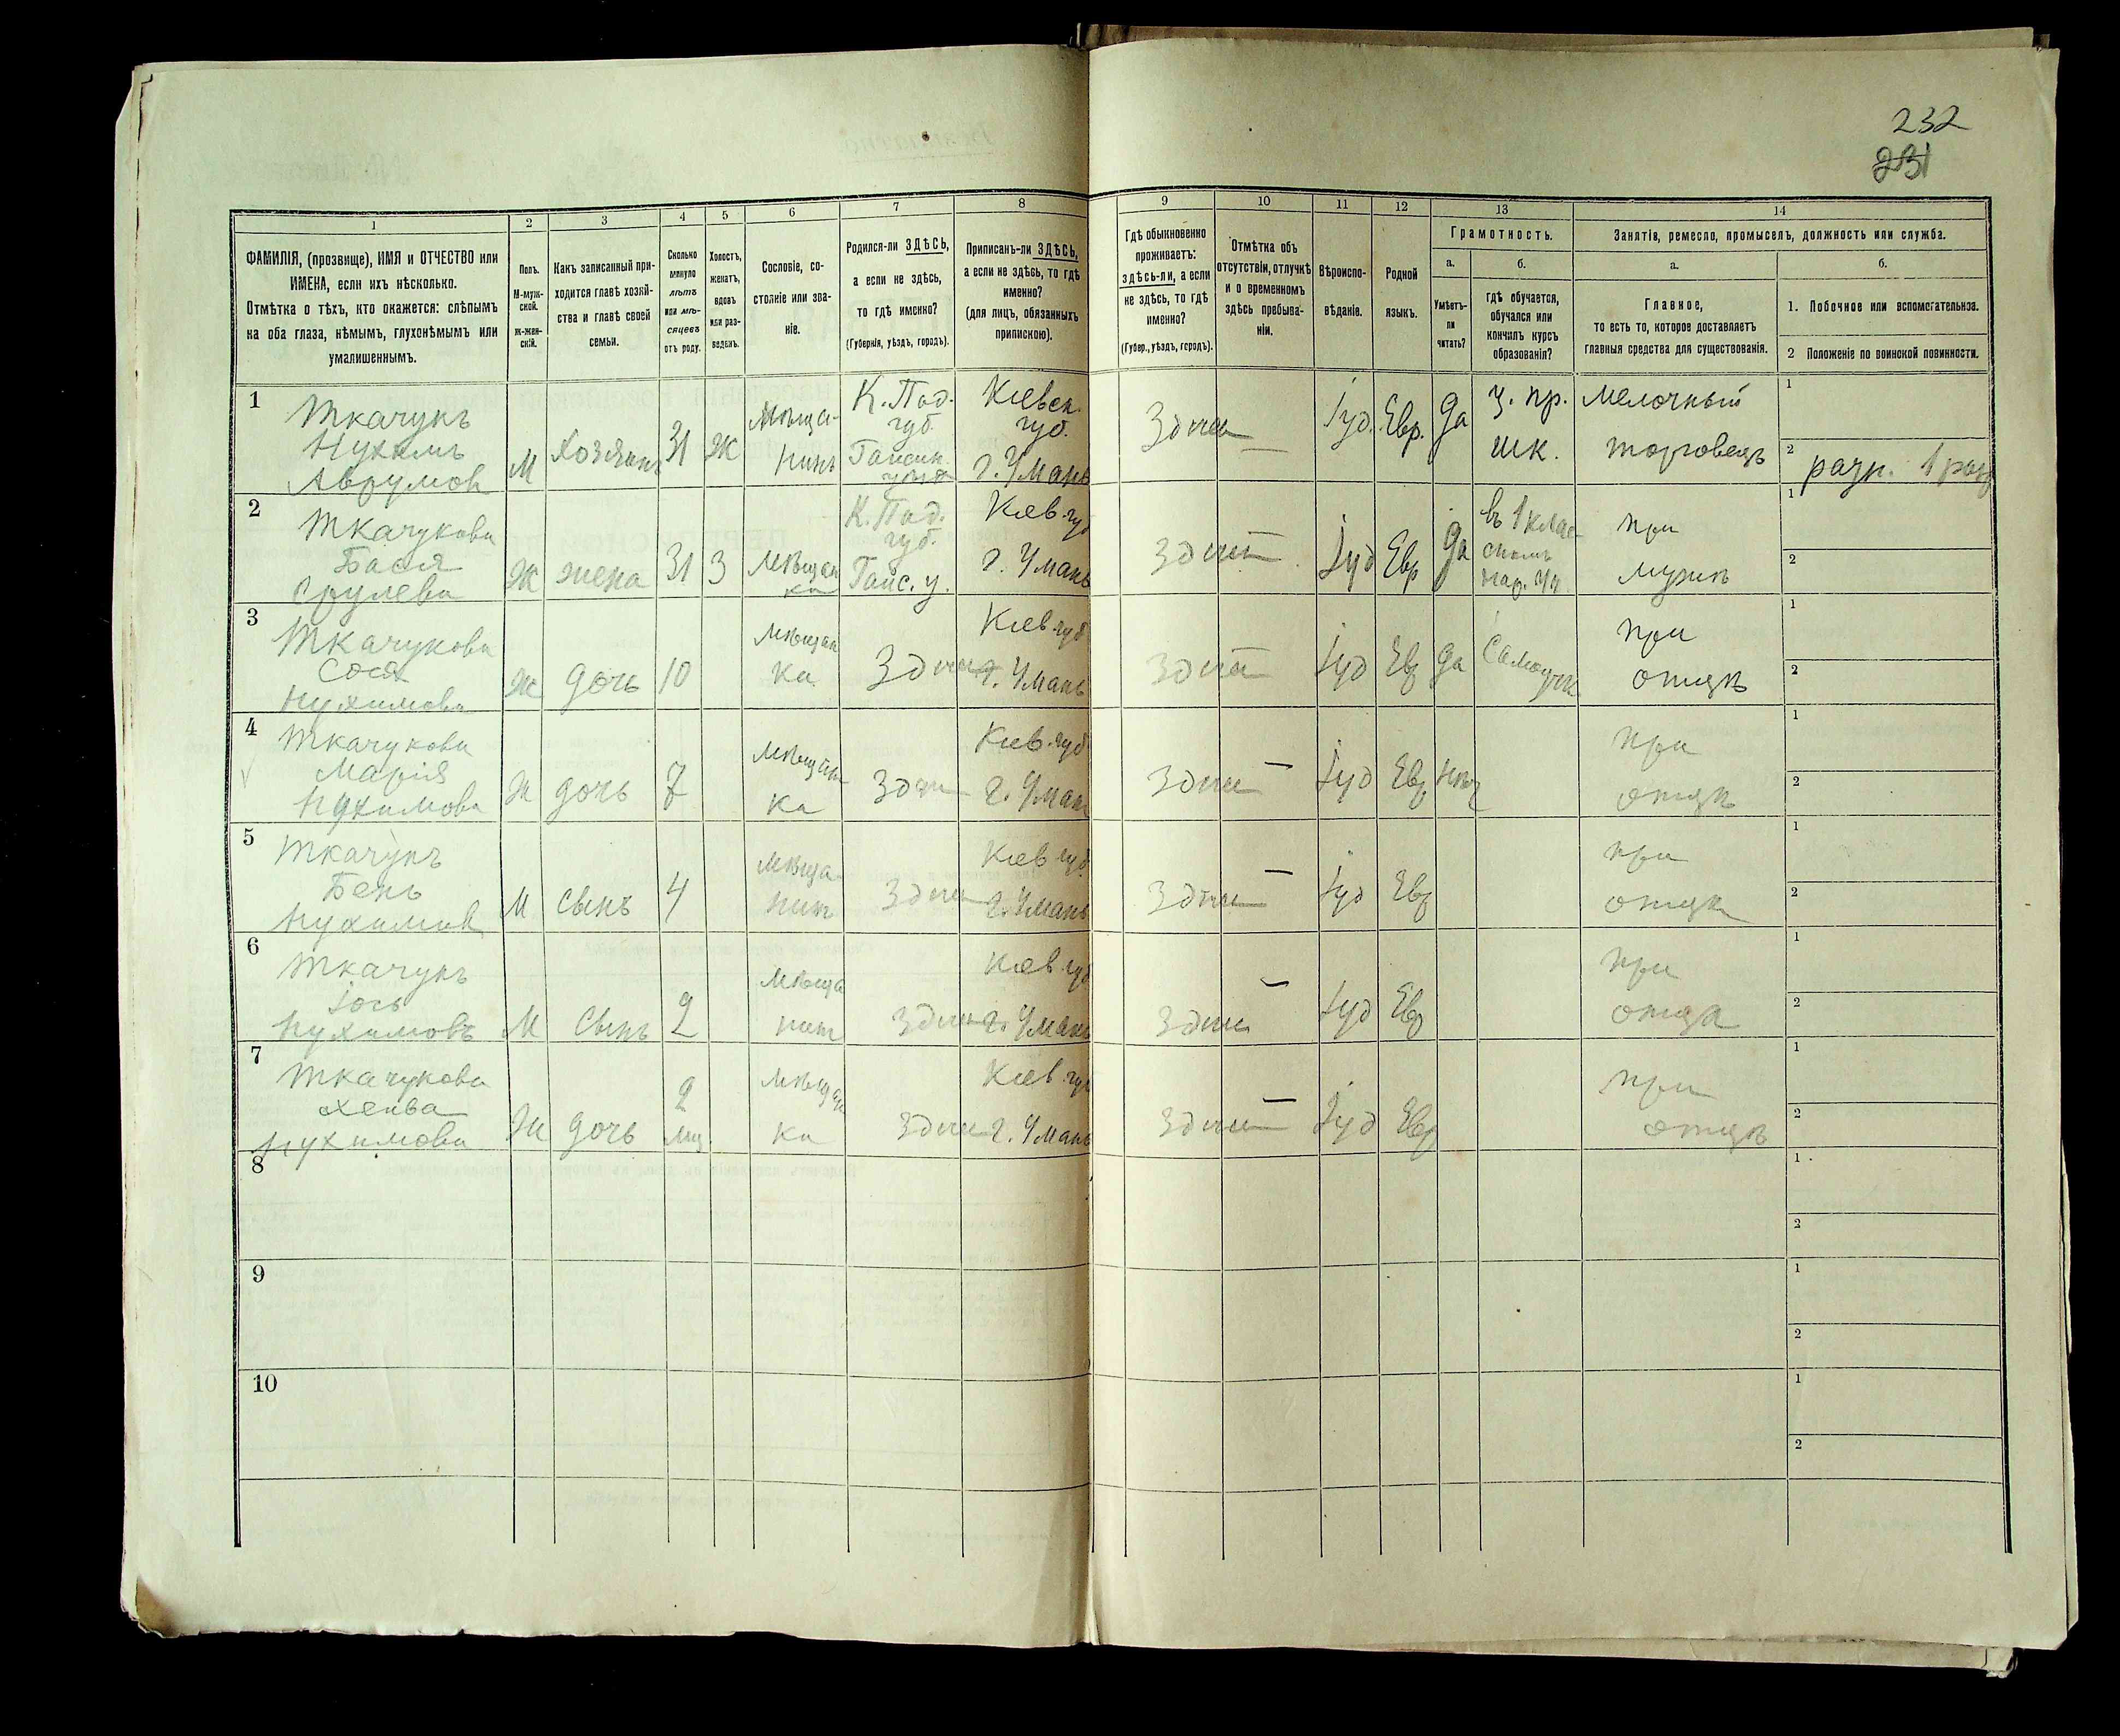 232
231
1
2
3
4
5
6
7
8
9
10
11
12
13
14
ФАМИЛІЯ, (прозвище), ИМЯ и ОТЧЕСТВО или
ИМЕНА, если ихъ нѣсколько.
Отмѣтка о тѣхъ, кто окажется: слѣпымъ
на оба глаза, нѣмымъ, глухонѣмымъ или
умалишеннымъ.
Полъ.
М-муж-
ской.
Ж-жен-
скій.
Какъ записанный при-
ходится главѣ хозяй-
ства и главѣ своей
семьи.
Сколько
минуло
лѣтъ
или мѣ-
сяцевъ
отъ роду.
Холостъ,
женатъ,
вдовъ
или раз-
веденъ.
Сословіе, со-
стояніе или зва-
ніе.
Родился-ли ЗДѢСЬ,
а если не здѣсь,
то гдѣ именно?
(Губернія, уѣздъ, городъ).
Приписанъ-ли ЗДѢСЬ,
а если не здѣсь, то гдѣ
именно?
(для лицъ, обязанныхъ
припискою).
Гдѣ обыкновенно
проживаетъ:
здѣсь-ли, а если
не здѣсь, то гдѣ
именно?
(Губер., уѣздъ, городъ).
Отмѣтка объ
отсутствіи, отлучкѣ
и о временномъ
здѣсь пребыва-
ніи.
Вѣроиспо-
вѣданіе.
Родной
языкъ.
Грамотность.
а.
Умѣетъ-
ли
читать?
б.
Гдѣ обучается,
обучался или
кончилъ курсъ
образованія?
Занятія, ремесло, промыселъ, должность или служба.
а.
Главное,
то есть то, которое доставляетъ
главныя средства для существованія.
б.
1. Побочное или вспомогательное.
2 Положеніе по воинской повинности.
1
Ткачукъ
Нухимъ
Аврумов
М
Хозяинъ
31
Ж
Мѣща-
нинъ
К. Под.
губ.
Гайсин.
Кіевск.
губ.
г. Умань
Здѣсь
—
Іуд.
Евр.
да
пр.
шк.
мелочный
торговецъ
1
2
1 раз
2
Ткачукова
Бася
Срулева
Ж
жена
31
З
Мѣщан
ка
К. Под.
губ.
Гайс. у.
Кіев. губ
г. Умань
Здѣсь
—
Іуд
Евр
да
въ 1 клас
нар. уч.
при
мужѣ
1
2
3
Ткачукова
Сося
Нухимова
Ж
дочь
10
Мѣщан
ка
Здѣсь
Кіев. губ
г. Умань
Здѣсь
—
Іуд
Евр
да
Самоучк
при
отцѣ
1
2
4
Ткачукова
Марія
Нухимова
Ж
дочь
7
Мѣщан
ка
Здѣсь
Кіев. губ
г. Умань
Здѣсь
—
Іуд
Евр
нѣт
при
отцѣ
1
2
5
Ткачукъ
Бень
Нухимов
М
сынъ
4
Мѣща-
нинъ
Здѣсь
Кіев губ
г. Умань
Здѣсь
—
Іуд
Евр
при
отцѣ
1
2
6
Ткачукъ
Іось
Нухимовъ
М
Сынъ
2
Мѣща
нин
Здѣсь
Кіев. губ
г. Умань
Здѣсь
—
Іуд
Евр
при
отцѣ
1
2
7
Ткачукова
Нухимова
Ж
дочь
2
мц.
Мѣщан
ка
Здѣсь
Кіев. губ
г. Умань
Здѣсь
—
Іуд
Евр
при
отцѣ
1
2
8
1
2
9
1
2
10
1
2